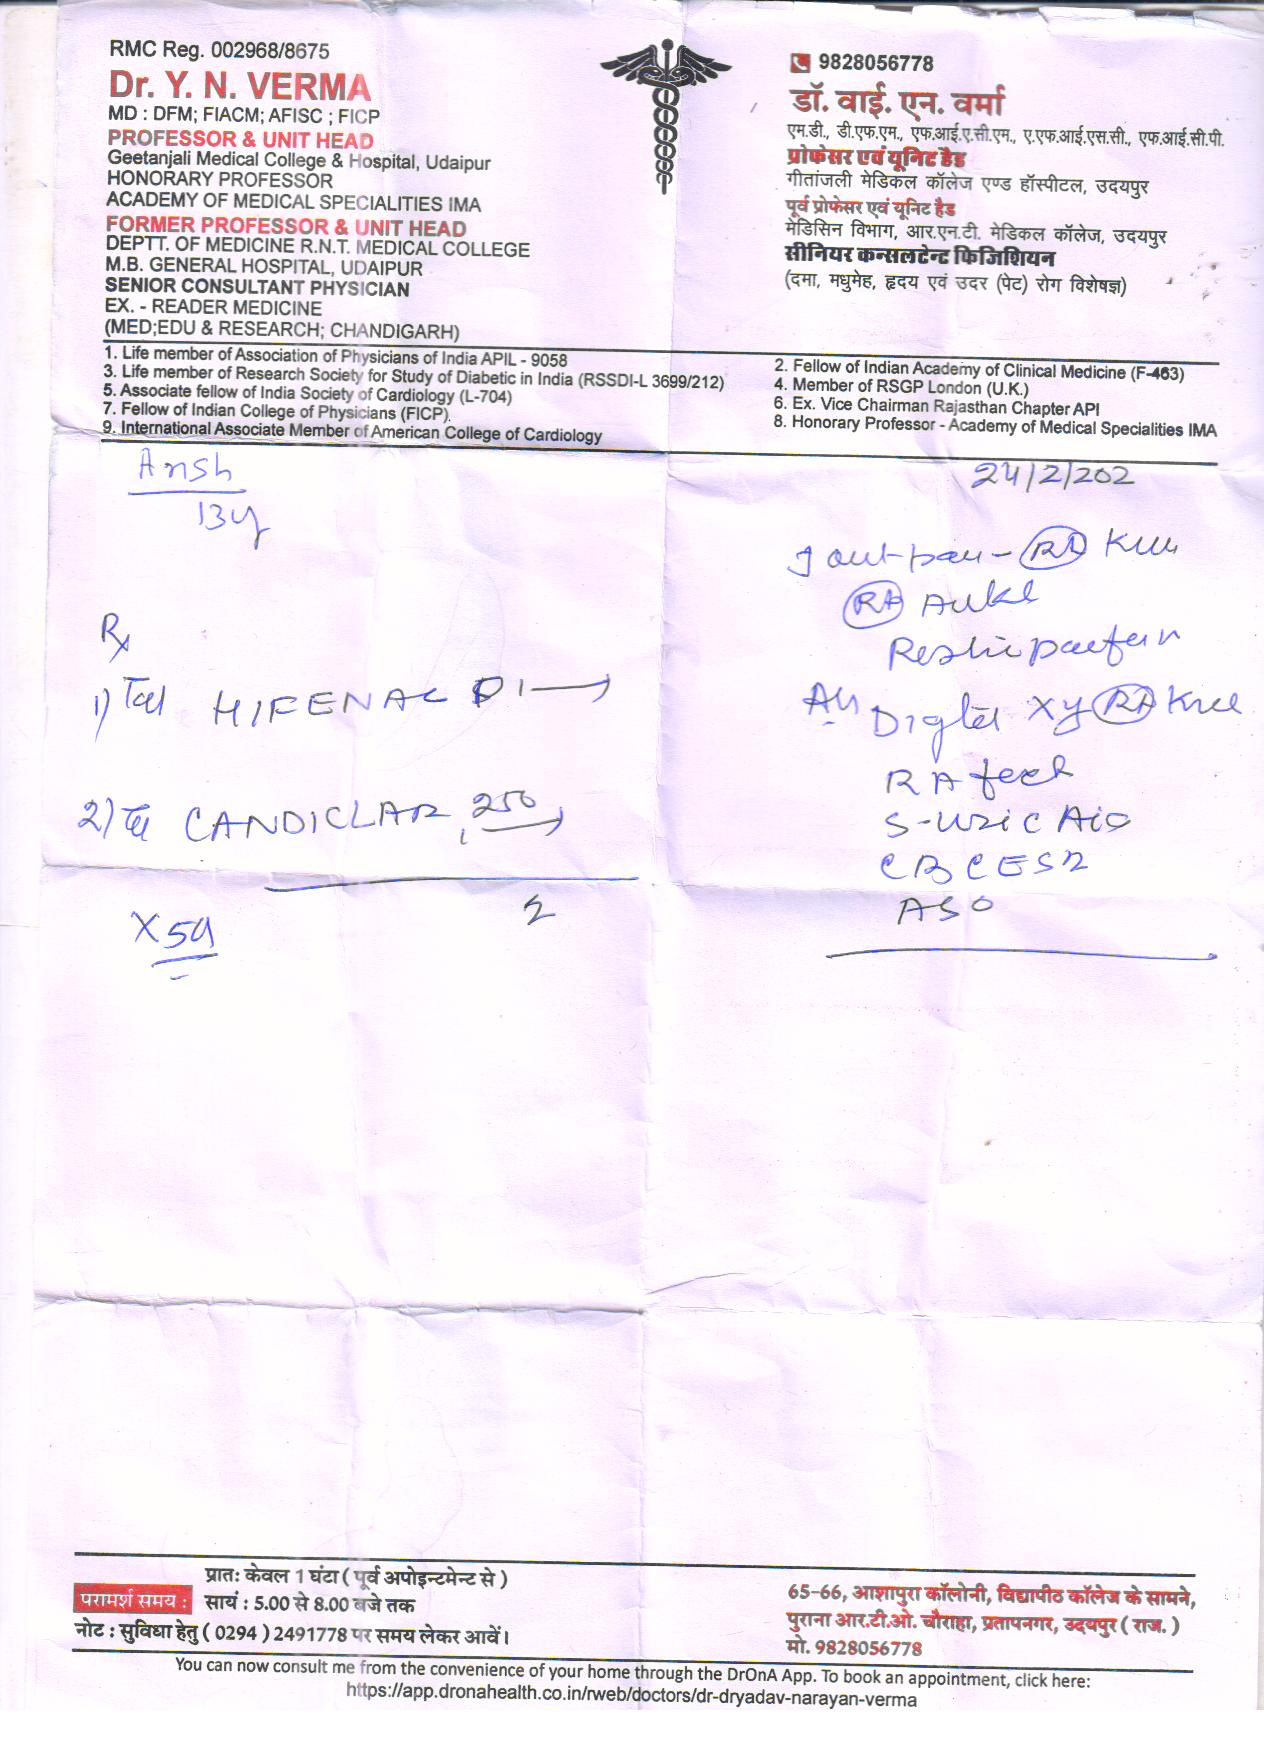 RMC Reg. 002968/8675
Dr. Y. N. VERMA
MD : DFM; FIACM; AFISC ; FICP
PROFESSOR & UNIT HEAD
Geetanjali Medical College & Hospital, Udaipur
HONORARY PROFESSOR
ACADEMY OF MEDICAL SPECIALITIES IMA
FORMER PROFESSOR & UNIT HEAD
DEPTT. OF MEDICINE R.N.T. MEDICAL COLLEGE
M.B. GENERAL HOSPITAL, UDAIPUR
SENIOR CONSULTANT PHYSICIAN
EX. - READER MEDICINE
(MED;EDU & RESEARCH; CHANDIGARH)
9828056778
डॉ. वाई. एन. वर्मा
एम.डी., डी.एफ.एम., एफ.आई.ए.सी.एम., ए.एफ.आई.एस.सी., एफ.आई.सी.पी.
प्रोफेसर एवं यूनिट हैड
गीतांजली मेडिकल कॉलेज एण्ड हॉस्पीटल, उदयपुर
पूर्व प्रोफेसर एवं यूनिट हैड
मेडिसिन विभाग, आर.एन.टी. मेडिकल कॉलेज, उदयपुर
सीनियर कन्सलटेन्ट फिजिशियन
(दमा, मधुमेह, हृदय एवं उदर (पेट) रोग विशेषज्ञ)
1. Life member of Association of Physicians of India APIL - 9058
2. Fellow of Indian Academy of Clinical Medicine (F-463)
3. Life member of Research Society for Study of Diabetic in India (RSSDI-L 3699/212)
4. Member of RSGP London (U.K.)
5. Associate fellow of India Society of Cardiology (L-704)
6. Ex. Vice Chairman Rajasthan Chapter API
7. Fellow of Indian College of Physicians (FICP).
8. Honorary Professor - Academy of Medical Specialities IMA
9. International Associate Member of American College of Cardiology
Ansh
13y
24/2/202
Rx
1) HIFENAC
2) CANDICLAR 250
2
x 5d
RA
RA
Digital RA Knee
RA
S-Uric
CBC ESR
ASO
परामर्श समय :
प्रातः केवल 1 घंटा ( पूर्व अपोइन्टमेन्ट से )
सायं : 5.00 से 8.00 बजे तक
नोट : सुविधा हेतु ( 0294 ) 2491778 पर समय लेकर आवें।
65-66, आशापुरा कॉलोनी, विद्यापीठ कॉलेज के सामने,
पुराना आर.टी.ओ. चौराहा, प्रतापनगर, उदयपुर ( राज. )
मो. 9828056778
You can now consult me from the convenience of your home through the DrOnA App. To book an appointment, click here:
https://app.dronahealth.co.in/rweb/doctors/dr-dryadav-narayan-verma